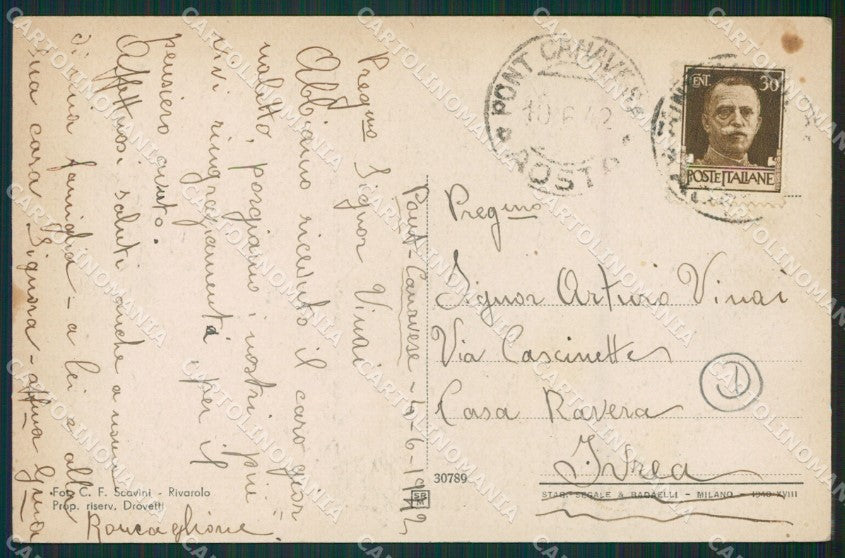 Pont-Canavese - 4-6-1942
Pregmo Signor Vinai
Abbiamo ricevuto il caro gior
naletto, porgiamo i nostri più
vivi ringraziamenti per il
pensiero avuto.
Affettuosi saluti anche a nome
di mia famiglia - a lei e alla
sua cara Signora - affma
Roncaglione.
PONT CANAVESE
10.6.42
AOSTA
CENT. 30
POSTE ITALIANE
Pregmo
Signor Arturo Vinai
Via Cascinette
Casa Ravera
Ivrea
1
30789
SRM
STAB. SEGALE & RADAELLI - MILANO - 1940-XVIII
Fot. C. F. Scavini - Rivarolo
Prop. riserv. Drovetti
CARTOLINOMANIA